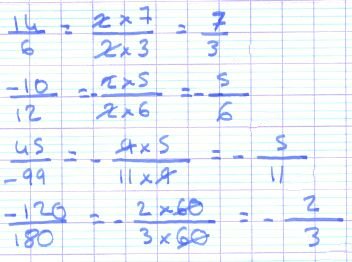 14/6 = 2 x 7/2 x 3 = 7/3
-10/12 = - 2 x 5/2 x 6 = - 5/6
45/-99 = - 9 x 5/11 x 9 = - 5/11
-120/180 = - 2 x 60/3 x 60 = - 2/3